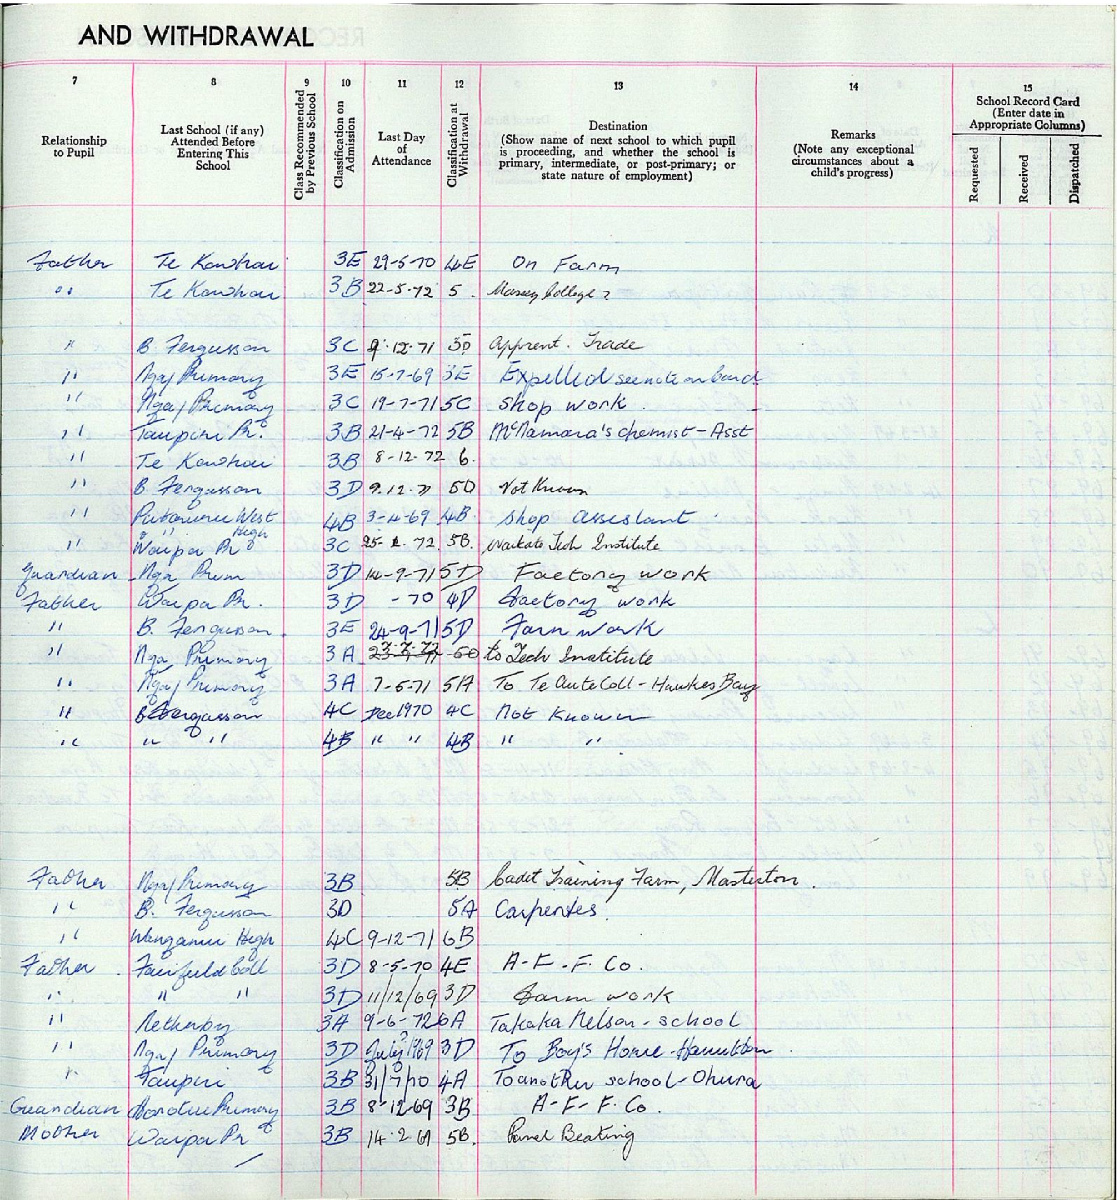 AND WITHDRAWAL
7 8 9 10 11 12 13 14 15
Relationship to Pupil
Last School (if any) Attended Before Entering This School
Class Recommended by Previous School
Classification on Admission
Last Day of Attendance
Classification at Withdrawal
Destination (Show name of next school to which pupil is proceeding, and whether the school is primary, intermediate, or post-primary; or state nature of employment)
Remarks (Note any exceptional circumstances about a child's progress)
School Record Card (Enter date in Appropriate Columns)
Requested Received Dispatched
Father Te Kowhai 3E 29-5-70 4E On Farm
" Te Kowhai 3B 22-5-72 5. Massey College?
" B. Fergusson 3C 9-12-71 5D Apprent. Trade
" Nga/ Primary 3E 15-7-69 3E Expelled see note on card
" Nga/ Primary 3C 19-7-71 5C Shop work.
" Taupiri Pr. 3B 21-4-72 5B McNamara's Chemist-Asst
" Te Kowhai 3B 8-12-72 6.
" B. Fergusson 3D 9.12.71 5D Not Known
" West High 4B 3-4-69 4B Shop assistant.
" Waipa Pr 3C 72 5B. Waikato Tech Institute
Guardian Nga Prim 3D 14-9-71 5D Factory work
Father Waipa Pr. 3D -70 4D Factory work
" B. Fergusson 3E 24-9-71 5D Farm work
" Nga Primary 3A 5D to Tech Institute
" Nga/ Primary 3A 7-5-71 5A To Te Aute Coll-Hawkes Bay
" B Fergusson 4C Dec 1970 4C Not Known
" " " 4B " " 4B " "
Father Nga/ Primary 3B 5B Cadet Training Farm, Masterton.
" B. Fergusson 3D 5A Carpenter.
" Wanganui High 4C 9-12-71 6B
Father. Fairfield Coll 3D 8-5-70 4E A-F-F. Co.
" " " 3D 11/12/69 3D Farm work
" Netherby 3A 9-6-72 6A Takaka Nelson-school
" Nga/ Primary 3D July? 1969 3D To Boy's Home-Hamilton.
" Taupiri 3B 31/7/70 4A To another school-Ohura
Guardian Horotiu Primary 3B 8-12-69 3B A-F-F. Co.
Mother Waipa Pr 3B 14.2.69 5B. Panel Beating